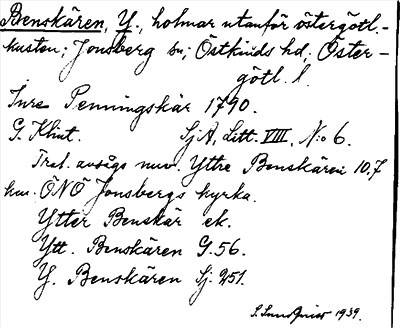 Benskären, Y., holmar utanför östergötl.-
kusten; Jonsberg sn; Östkinds hd; Öster-
götl. l.
Inre Penningskär 1790.
G. Klint. SjA, Litt. VIII, No 6.
Trol. avsågs nuv. Yttre Benskären 10,7
km. ÖNÖ Jonsbergs kyrka.
Ytter Benskär ek.
Ytt. Benskären G. 56.
Y. Benskären Sj. 251.
1939.